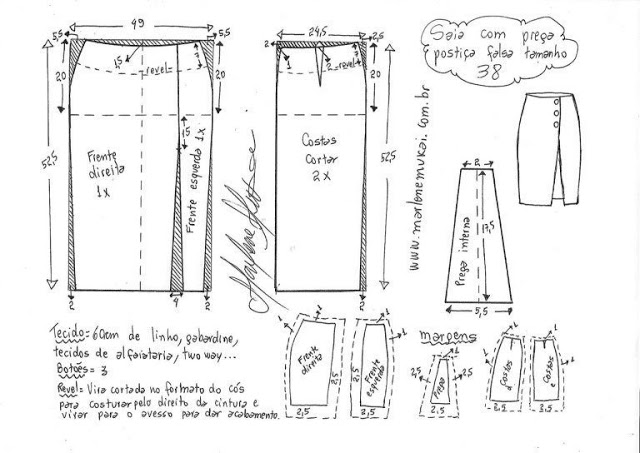 Saia com prega
postiça falsa tamanho
38
49
5,5
5,5
20
20
52,5
1,5
revel
3
15
Frente
direita
1x
Frente esquerda 1x
2
4
2
24,5
2
2,5
1
2
revel
3
20
52,5
Costas
cortar
2x
2
www.marlenemukai.com.br
2
17,5
Prega interna
5,5
Tecido= 60cm de linho, gabardine,
tecidos de alfaiataria, two way...
Botões= 3
Revel= Vira cortada no formato do cós
para costurar pelo direito da cintura e
virar para o avesso para dar acabamento.
margens
1
1
Frente
direita
2,5
2,5
1
1
Frente
esquerda
2,5
1
2,5
Prega
2,5
2,5
1
1
Costas
d
2,5
2,5
1
1
Costas
e
3,5